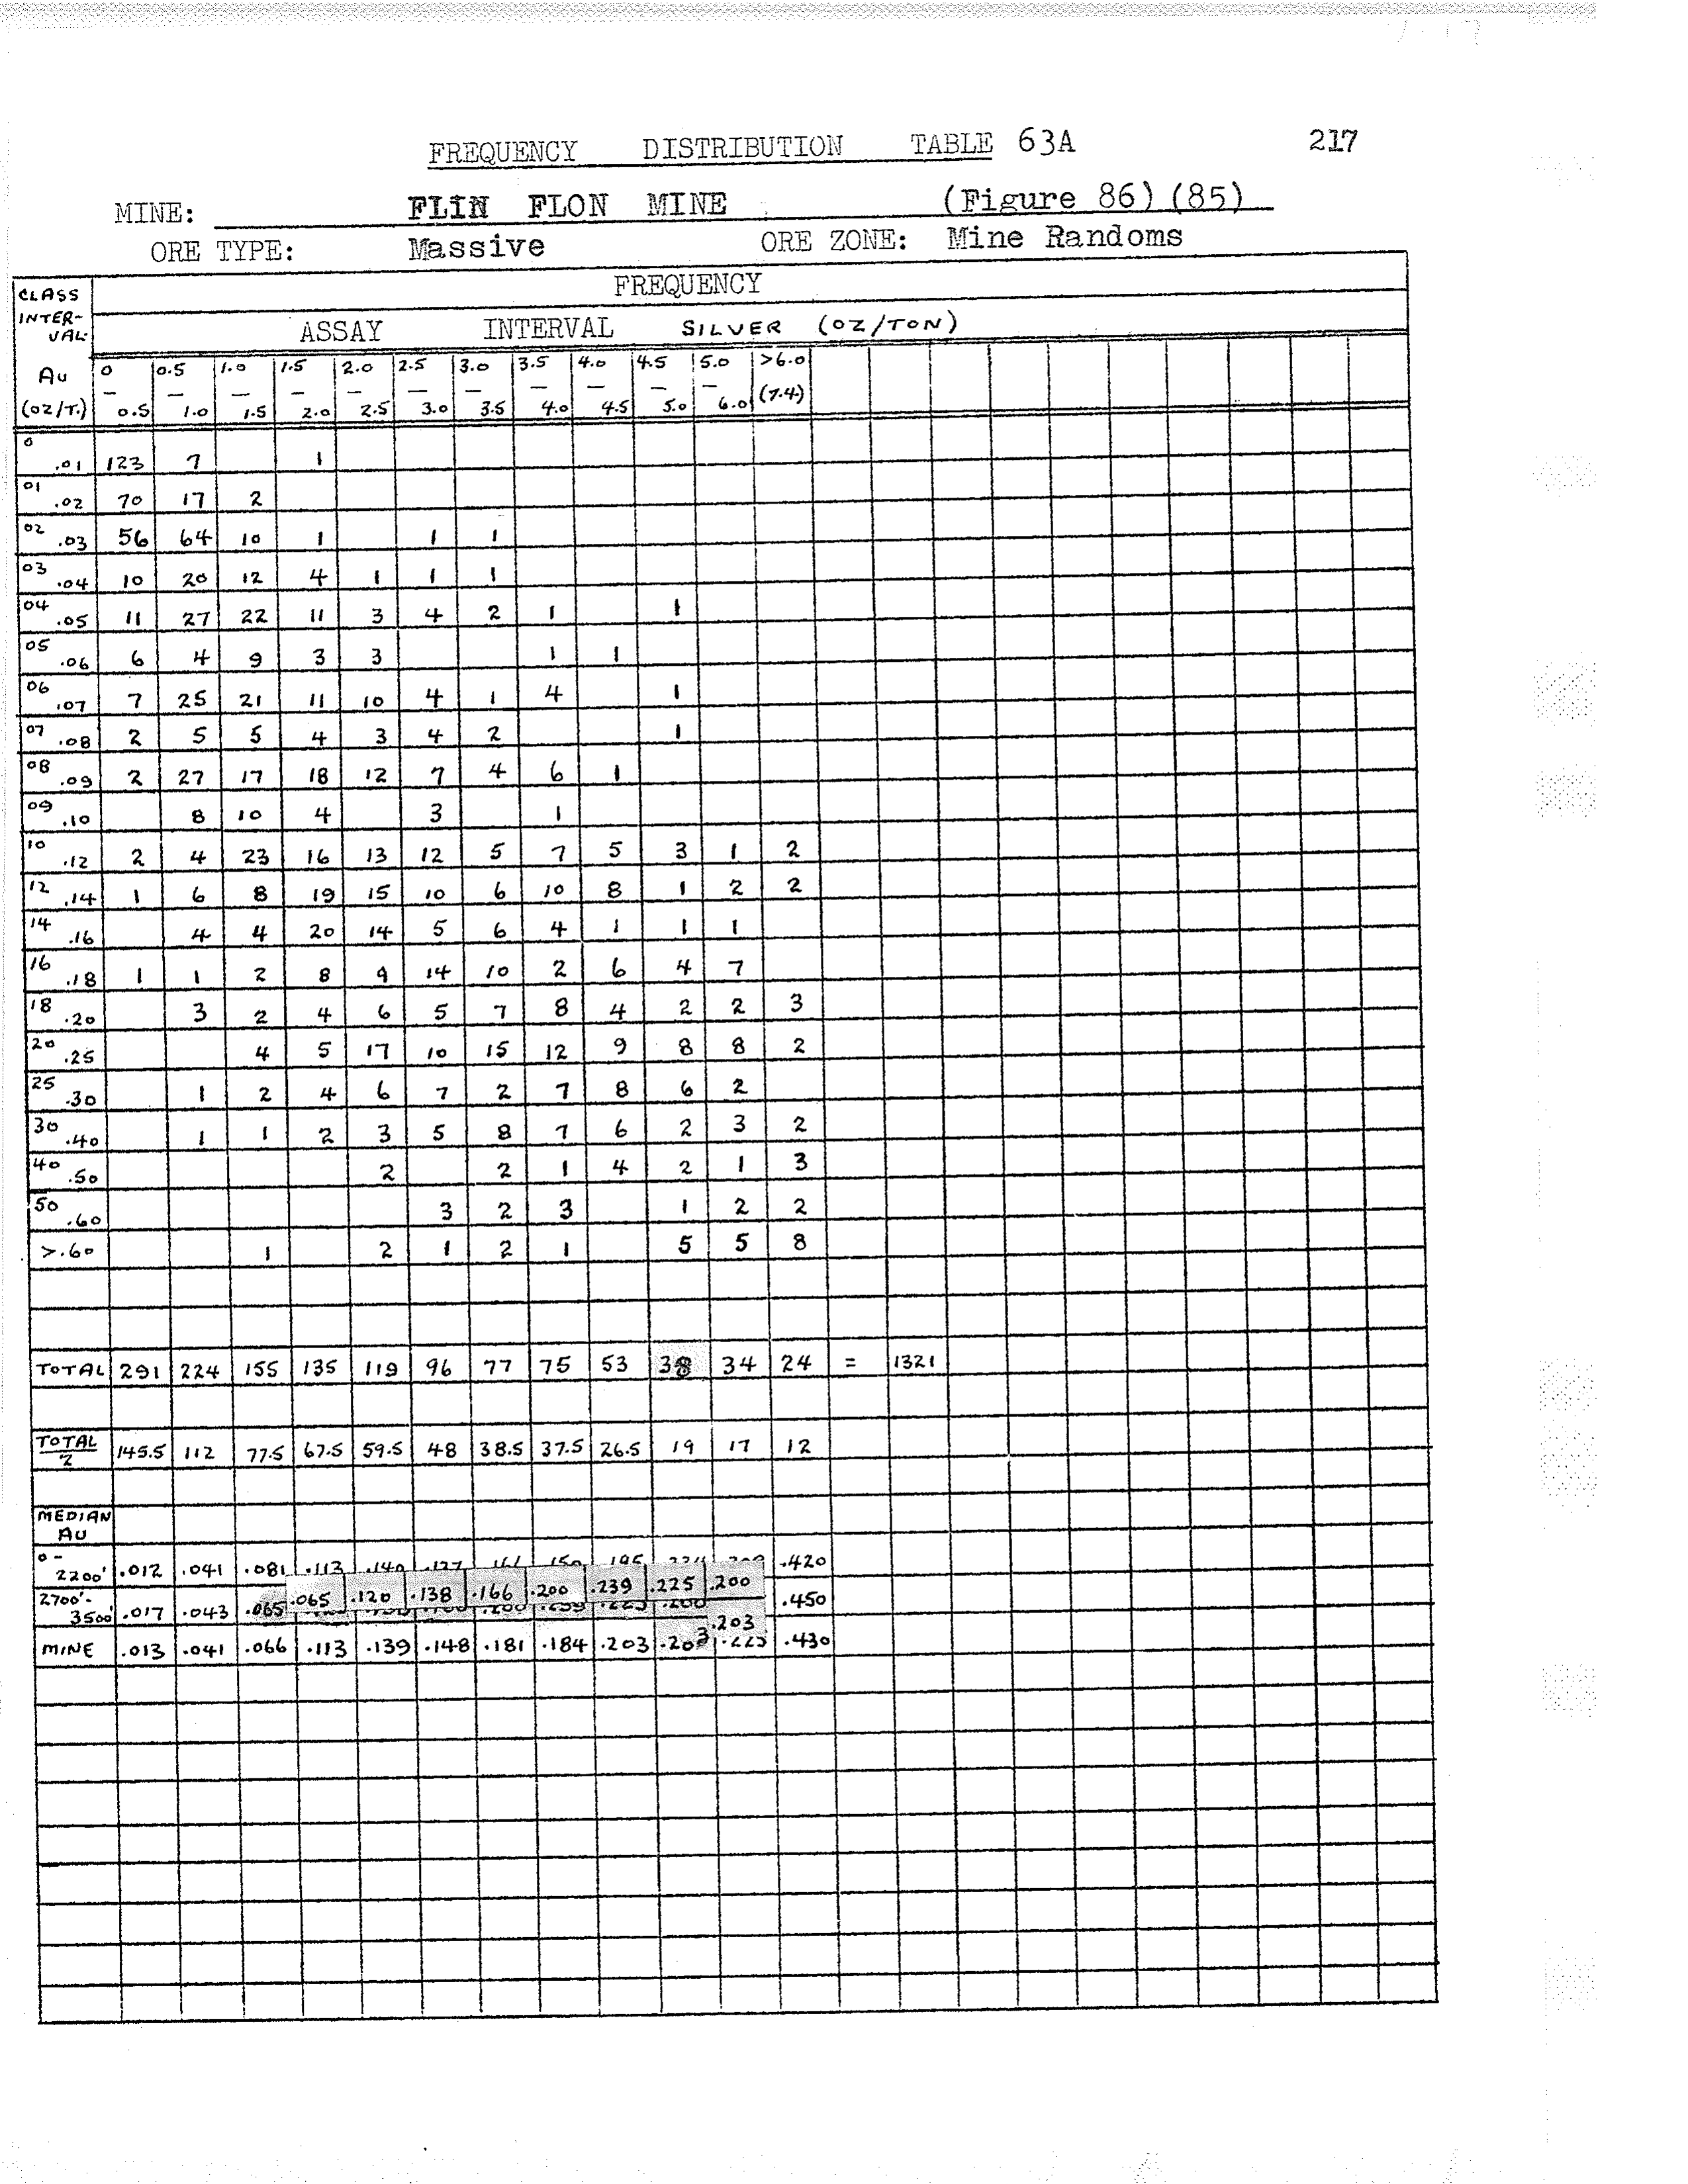 FREQUENCY DISTRIBUTION TABLE 63A 217
MINE: FLIN FLON MINE (Figure 86) (85)
ORE TYPE: Massive ORE ZONE: Mine Randoms
CLASS INTER- VAL Au (OZ/T.)
FREQUENCY
ASSAY INTERVAL SILVER (OZ/TON)
0 – 0.5 0.5 – 1.0 1.0 – 1.5 1.5 – 2.0 2.0 – 2.5 2.5 – 3.0 3.0 – 3.5 3.5 – 4.0 4.0 – 4.5 4.5 – 5.0 5.0 – 6.0 >6.0 (7.4)
0 .01 123 7 1
01 .02 70 17 2
02 .03 56 64 10 1 1 1
03 .04 10 20 12 4 1 1 1
04 .05 11 27 22 11 3 4 2 1 1
05 .06 6 4 9 3 3 1 1
06 .07 7 25 21 11 10 4 1 4 1
07 .08 2 5 5 4 3 4 2 1
08 .09 2 27 17 18 12 7 4 6 1
09 .10 8 10 4 3 1
10 .12 2 4 23 16 13 12 5 7 5 3 1 2
12 .14 1 6 8 19 15 10 6 10 8 1 2 2
14 .16 4 4 20 14 5 6 4 1 1 1
16 .18 1 1 2 8 9 14 10 2 6 4 7
18 .20 3 2 4 6 5 7 8 4 2 2 3
20 .25 4 5 17 10 15 12 9 8 8 2
25 .30 1 2 4 6 7 2 7 8 6 2
30 .40 1 1 2 3 5 8 7 6 2 3 2
40 .50 2 2 1 4 2 1 3
50 .60 3 2 3 1 2 2
>.60 1 2 1 2 1 5 5 8
TOTAL 291 224 155 135 119 96 77 75 53 38 34 24 = 1321
TOTAL/2 145.5 112 77.5 67.5 59.5 48 38.5 37.5 26.5 19 17 12
MEDIAN AU
0 - 2200' .012 .041 .081 .113 .140 .127 .195 .420
2700'- 3500' .017 .043 .065 .065 .120 .138 .166 .200 .239 .225 .200 .450
.203
MINE .013 .041 .066 .113 .139 .148 .181 .184 .203 .430